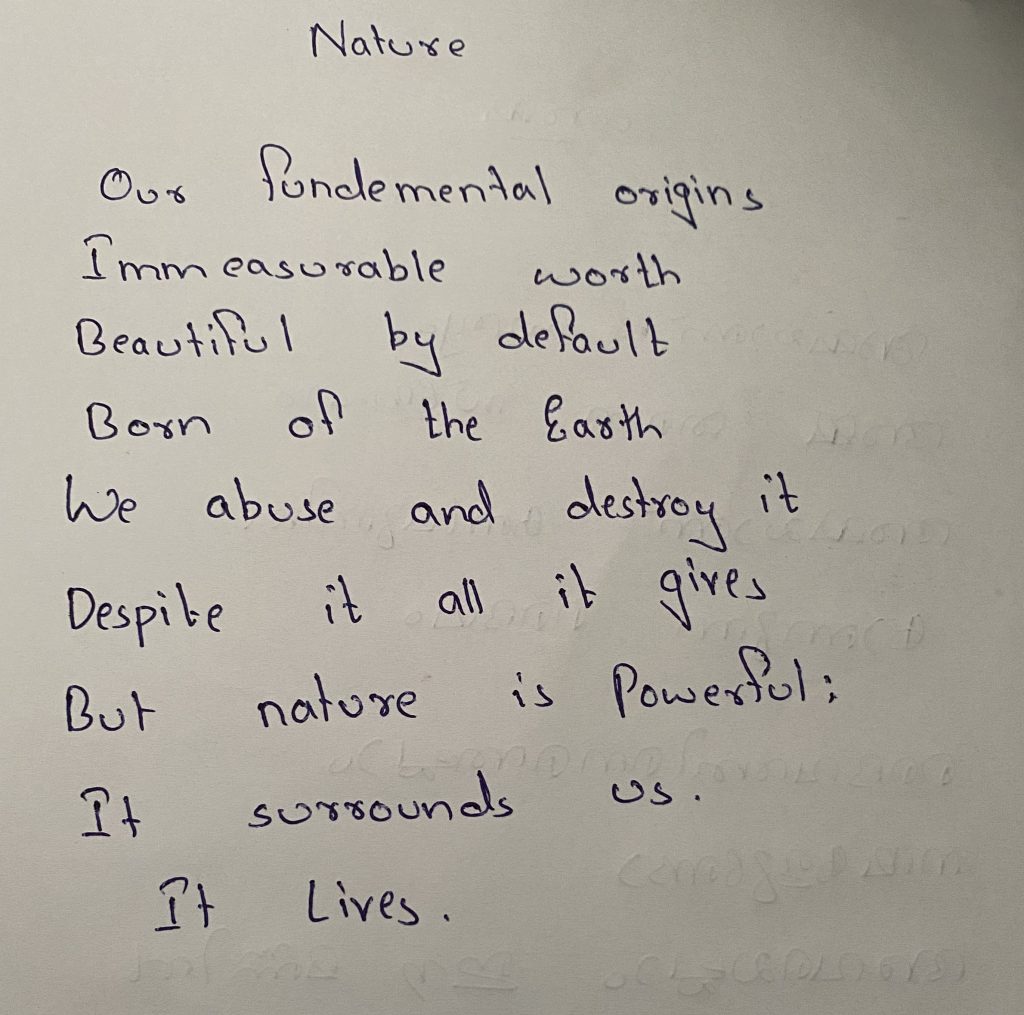 Nature
Our fundemental origins
Immeasurable worth
Beautiful by default
Born of the Earth
We abuse and destroy it
Despite it all it gives
But nature is Powerful;
It surrounds us.
It Lives.